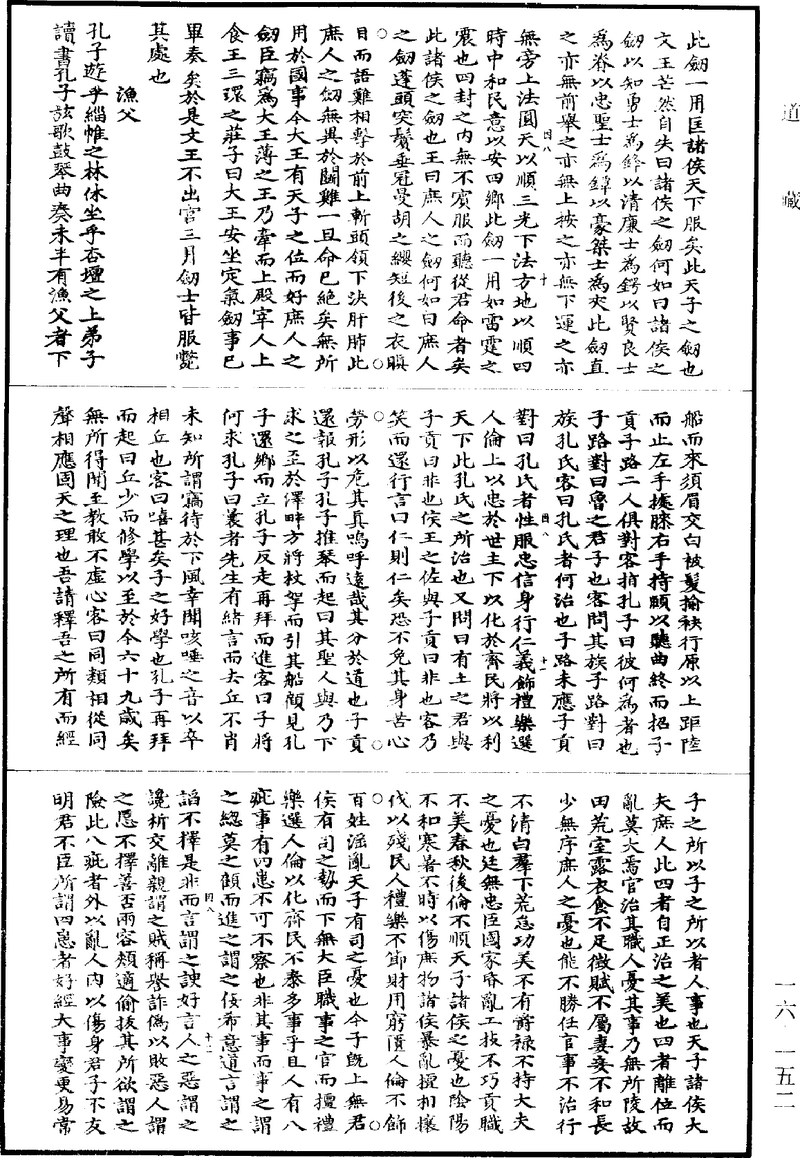 道藏
此劔一用匡諸侯天下服矣此天子之劔也
文王芒然自失曰諸侯之劔何如曰諸侯之
劔以知勇士爲鋒以清廉士爲鍔以賢良士
爲脊以忠聖士爲鐔以豪桀士爲夾此劔直
之亦無前舉之亦無上按之亦無下運之亦
四八 十
無旁上法圓天以順三光下法方地以順四
時中和民意以安四鄉此劔一用如雷霆之
震也四封之内無不賓服而聽從君命者矣
此諸侯之劔也王曰庶人之劔何如曰庶人
之劔蓬頭突鬢垂冠曼胡之纓短後之衣瞋
目而語難相擊於前上斬頸領下決肝肺此
庶人之劔無異於鬭雞一旦命已絶矣無所
用於國事今大王有天子之位而好庶人之
劔臣竊爲大王薄之王乃牽而上殿宰人上
食王三環之莊子曰大王安坐定氣劔事已
畢奏矣於是文王不出宫三月劔士皆服斃
其處也
漁父
孔子遊乎緇帷之林休坐乎杏壇之上弟子
讀書孔子絃歌鼓琴曲奏未半有漁父者下
船而來須眉交白被髮揄袂行原以上距陸
而止左手據膝右手持頤以聽曲終而招子
貢子路二人俱對客指孔子曰彼何爲者也
子路對曰魯之君子也客問其族子路對曰
族孔氏客曰孔氏者何治也子路未應子貢
四八 十一
對曰孔氏者性服忠信身行仁義飾禮樂選
人倫上以忠於世主下以化於齊民將以利
天下此孔氏之所治也又問曰有土之君與
子貢曰非也侯王之佐與子貢曰非也客乃
笑而還行言曰仁則仁矣恐不免其身苦心
勞形以危其真嗚呼遠哉其分於道也子貢
還報孔子孔子推琴而起曰其聖人與乃下
求之至於澤畔方將杖拏而引其船顧見孔
子還鄉而立孔子反走再拜而進客曰子將
何求孔子曰曩者先生有緒言而去丘不肖
未知所謂竊待於下風幸聞咳唾之音以卒
相丘也客曰嘻甚矣子之好學也孔子再拜
而起曰丘少而修學以至於今六十九歲矣
無所得聞至教敢不虚心客曰同類相從同
聲相應固天之理也吾請釋吾之所有而經
子之所以子之所以者人事也天子諸侯大
夫庶人此四者自正治之美也四者離位而
亂莫大焉官治其職人憂其事乃無所陵故
田荒室露衣食不足徵賦不屬妻妾不和長
少無序庶人之憂也能不勝任官事不治行
不清白羣下荒怠功美不有爵禄不持大夫
之憂也廷無忠臣國家昏亂工技不巧貢職
不美春秋後倫不順天子諸侯之憂也陰陽
不和寒暑不時以傷庶物諸侯暴亂擅相攘
伐以殘民人禮樂不節財用窮匱人倫不飾
百姓淫亂天子有司之憂也今子既上無君
侯有司之勢而下無大臣職事之官而擅禮
樂選人倫以化齊民不泰多事乎且人有八
疵事有四患不可不察也非其事而事之謂
之總莫之顧而進之謂之佞希意道言謂之
四八 十二
諂不擇是非而言謂之諛好言人之惡謂之
讒析交離親謂之賊稱譽詐僞以敗惡人謂
之慝不擇善否兩容頰適偷拔其所欲謂之
險此八疵者外以亂人内以傷身君子不友
明君不臣所謂四患者好經大事變更易常
一六·一五二